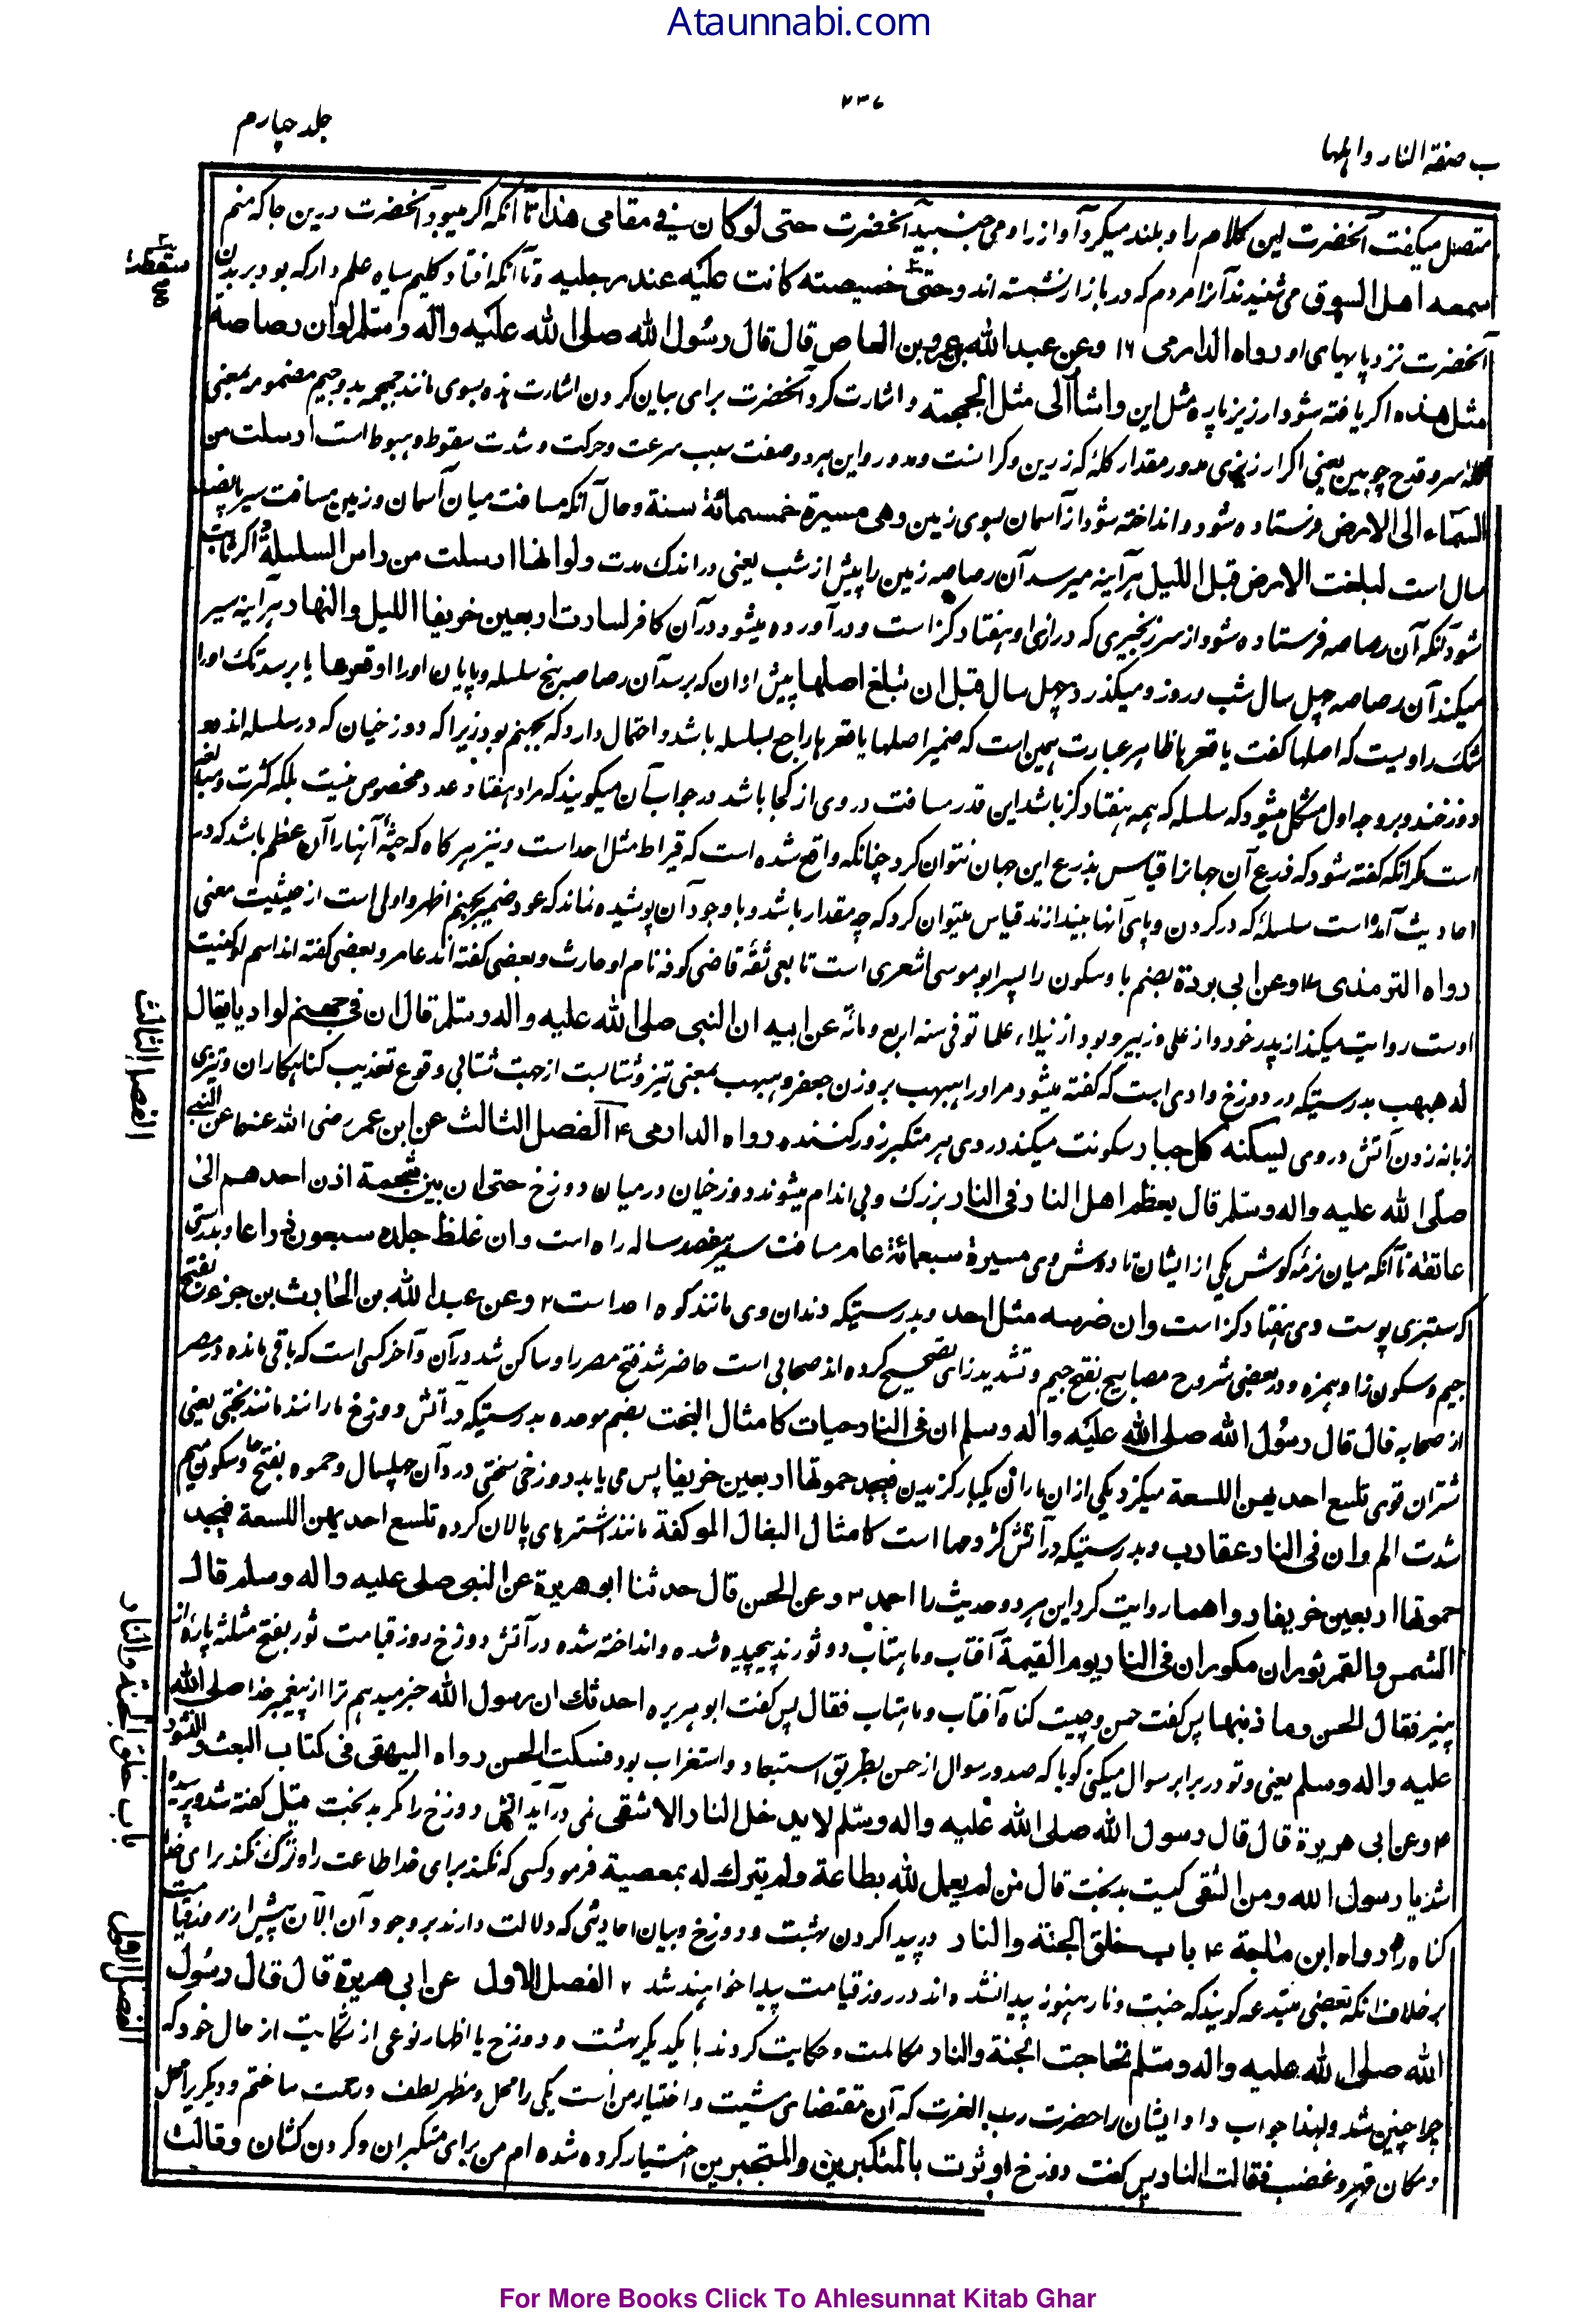 Ataunnabi.com
۴۳۷
جلد چهارم
ب صفة النار واهلها
متصل میگفت آنحضرت این کلام را و بلند میکرد آواز را و می جنبید آنحضرت حتی لو کان فی مقامی هذا تا آنکه اگر میبود آنحضرت درین جا که منم
سمعه اهل السوق می شنیدند آنرا مردم که در بازار نشسته اند و حتی خمیصته کانت علیه عند رجلیه و تا آنکه افتاد گلیم سیاه علم دار که بود بر بدن
سقطت
آنحضرت نزد پایهای او رواه الدارمی ۱۶ وعن عبد الله بن عمرو بن العاص قال قال رسول الله صلی الله علیه واله وسلم لو ان رصاصة
مثل هذه اگر یافته شود ارزیز پاره مثل این واشار الی مثل الجمجمة و اشارت کرد آنحضرت برای بیان کردن اشارت هذه بسوی مانند جمجمه بدو جیم مضمومه بمعنی
کاسه سر و قدح چوبین یعنی اگر ارزیزی مدور مقدار کله که زرین و گران ست و مدور و این هر دو صفت سبب سرعت و حرکت و شدت سقوط و هبوط است ارسلت من
السماء الی الارض فرستاده شود و انداخته شود از آسمان بسوی زمین وهی مسیرة خمسمائة سنة و حال آنکه مسافت میان آسمان و زمین مسافت سیر پانصد
سال است لبلغت الارض قبل اللیل هر آینه میرسد آن رصاصه زمین را پیش از شب یعنی در اندک مدت ولو انها ارسلت من راس السلسلة و اگر ثابت
شود آنکه آن رصاصه فرستاده شود از سر زنجیری که درازی او هفتاد گز است و در آورده میشود در آن کافر لسارت اربعین خریفا اللیل والنهار هر آینه سیر
میکند آن رصاصه چهل سال شب و روز و میگذرد چهل سال قبل ان تبلغ اصلها پیش از آن که برسد آن رصاصه بیخ سلسله و پایان او را او قعرها یا برسد تک او را
شک راویست که اصلها گفت یا قعرها ظاهر عبارت همین است که ضمیر اصلها یا قعرها راجع بسلسله باشد و احتمال دارد که بجهنم بود زیرا که دوزخیان که در سلسله اند در
دوزخند و بر وجه اول مشکل میشود که سلسله که همه هفتاد گز باشد این قدر مسافت در وی از کجا باشد در جواب آن میگویند که مراد هفتاد عدد مخصوص نیست بلکه کثرت و مبالغه
است مگر آنکه گفته شود که ذرع آن جهانرا قیاس بذرع این جهان نتوان کرد چنانکه واقع شده است که قیراط مثل احد است و نیز هرگاه که جثه آنها را آن عظم باشد که در
احادیث آمده است سلسله که در گردن و پای آنها بیندازند قیاس میتوان کرد که چه مقدار باشد و با وجود آن پوشیده نماند که عود ضمیر بجهنم اظهر و اولی است از حیثیت معنی
رواه الترمذی ۱۷ وعن ابی بردة بضم با و سکون را پسر ابو موسی اشعری است تابعی ثقه قاضی کوفه نام او حارث و بعضی گفته اند عامر و بعضی گفته اند اسم او کنیت
اوست روایت میکند از پدر خود و از علی و زبیر و بود از نبلاء علما توفی سنه اربع و مائة عن ابیه ان النبی صلی الله علیه واله وسلم قال ان فی جهنم لوادیا یقال
له هبهب بدرستیکه در دوزخ وادی است که گفته میشود مر او را هبهب بر وزن جعفر و هبهب بمعنی تیز و شتاب ست از جهت شتابی وقوع تعذیب گناهکاران و تیزی
زبانه زدن آتش در وی یسکنه کل جبار سکونت میکند در وی هر متکبر زور کننده رواه الدارمی ۴ الفصل الثالث عن ابن عمر رضی الله عنهما عن النبی
صلی الله علیه واله وسلم قال یعظم اهل النار فی النار بزرگ و بی اندام میشوند دوزخیان در میان دوزخ حتی ان بین شحمة اذن احدهم الی
عاتقه تا آنکه میان نرمه گوش یکی از ایشان تا دوش وی مسیرة سبعمائة عام مسافت سیر هفصد ساله راه است وان غلظ جلده سبعون ذراعا و بدرستی
که ستبری پوست وی هفتاد گز است وان ضرسه مثل احد و بدرستیکه دندان وی مانند کوه احد است ۲ وعن عبد الله بن الحارث بن جزء بفتح
جیم و سکون زا و همزه و در بعضی شروح مصابیح بفتح جیم و تشدید زای تصحیح کرده اند صحابی است حاضر شد فتح مصر را و ساکن شد در آن و آخر کسی است که باقی مانده در مصر
از صحابه قال قال رسول الله صلی الله علیه واله وسلم ان فی النار حیات کامثال البخت بضم موحده بدرستیکه در آتش دوزخ مارانند مانند بختی یعنی
شتران قوی تلسع احدیهن اللسعة میگزد یکی از ان ماران یکبار گزیدن فیجد حموتها اربعین خریفا پس می یابد دوزخی سختی درد آن چهلسال و حموه بفتح حا و سکون میم
شدت الم وان فی النار عقارب و بدرستیکه در آتش کژدمها است کامثال البغال الموکفة مانند اشترهای پالان کرده تلسع احدیهن اللسعة فیجد
حموتها اربعین خریفا رواهما روایت کرد این هر دو حدیث را احمد ۳ وعن الحسن قال حدثنا ابو هریرة عن النبی صلی علیه واله وسلم قال
الشمس والقمر ثوران مکوران فی النار یوم القیمة آفتاب و ماهتاب دو ثورند پیچیده شده و انداخته شده در آتش دوزخ روز قیامت ثور بفتح مثلثه پاره از
پنیر فقال الحسن وما ذنبهما پس گفت حسن و چیست گناه آفتاب و ماهتاب فقال پس گفت ابو هریره احدثک ان رسول الله خبر میدهم ترا از پیغمبر خدا صلی الله
علیه واله وسلم یعنی و تو در برابر سوال میکنی گویا که صدور سوال از حسن بطریق استبعاد و استغراب بود فسکت الحسن رواه البیهقی فی کتاب البعث والنشور
۴ وعن ابی هریرة قال قال رسول الله صلی الله علیه واله وسلم لا یدخل النار الا شقی نمی در آید آتش دوزخ را مگر بدبخت قیل گفته شد و پرسیده
شد یا رسول الله ومن الشقی کیست بدبخت قال من لم یعمل لله بطاعة ولم یترک له بمعصیة فرمود کسی که نکند برای خدا طاعت را و ترک نکند برای خدا
گناه را رواه ابن ماجة ۴ باب خلق الجنة والنار در پیدا کردن بهشت و دوزخ و بیان احادیثی که دلالت دارند بر وجود آن الآن پیش از روز قیامت
بر خلاف آنکه بعضی مبتدعه گویند که جنت و نار هنوز پیدا نشده اند در روز قیامت پیدا خواهند شد ۴ الفصل الاول عن ابی هریرة قال قال رسول
الله صلی الله علیه واله وسلم تحاجت الجنة والنار مکالمت و حکایت کردند با یکدیگر بهشت و دوزخ یا اظهار نوعی از شکایت از حال خود که
چرا چنین شد ولهذا جواب داد ایشان را حضرت رب العزت که آن مقتضای مشیت و اختیار من است یکی را محل و مظهر لطف و رحمت ساختم و دیگری را محل
و مکان قهر و غضب فقالت النار پس گفت دوزخ اوثرت بالمتکبرین والمتجبرین اختیار کرده شده ام من برای متکبران و گردن کشان وقالت
الفصل الثالث
باب خلق الجنة والنار
الفصل الاول
For More Books Click To Ahlesunnat Kitab Ghar